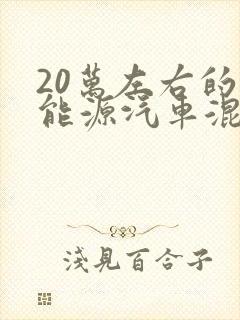 20萬左右的
能源汽車混
淺見百合子